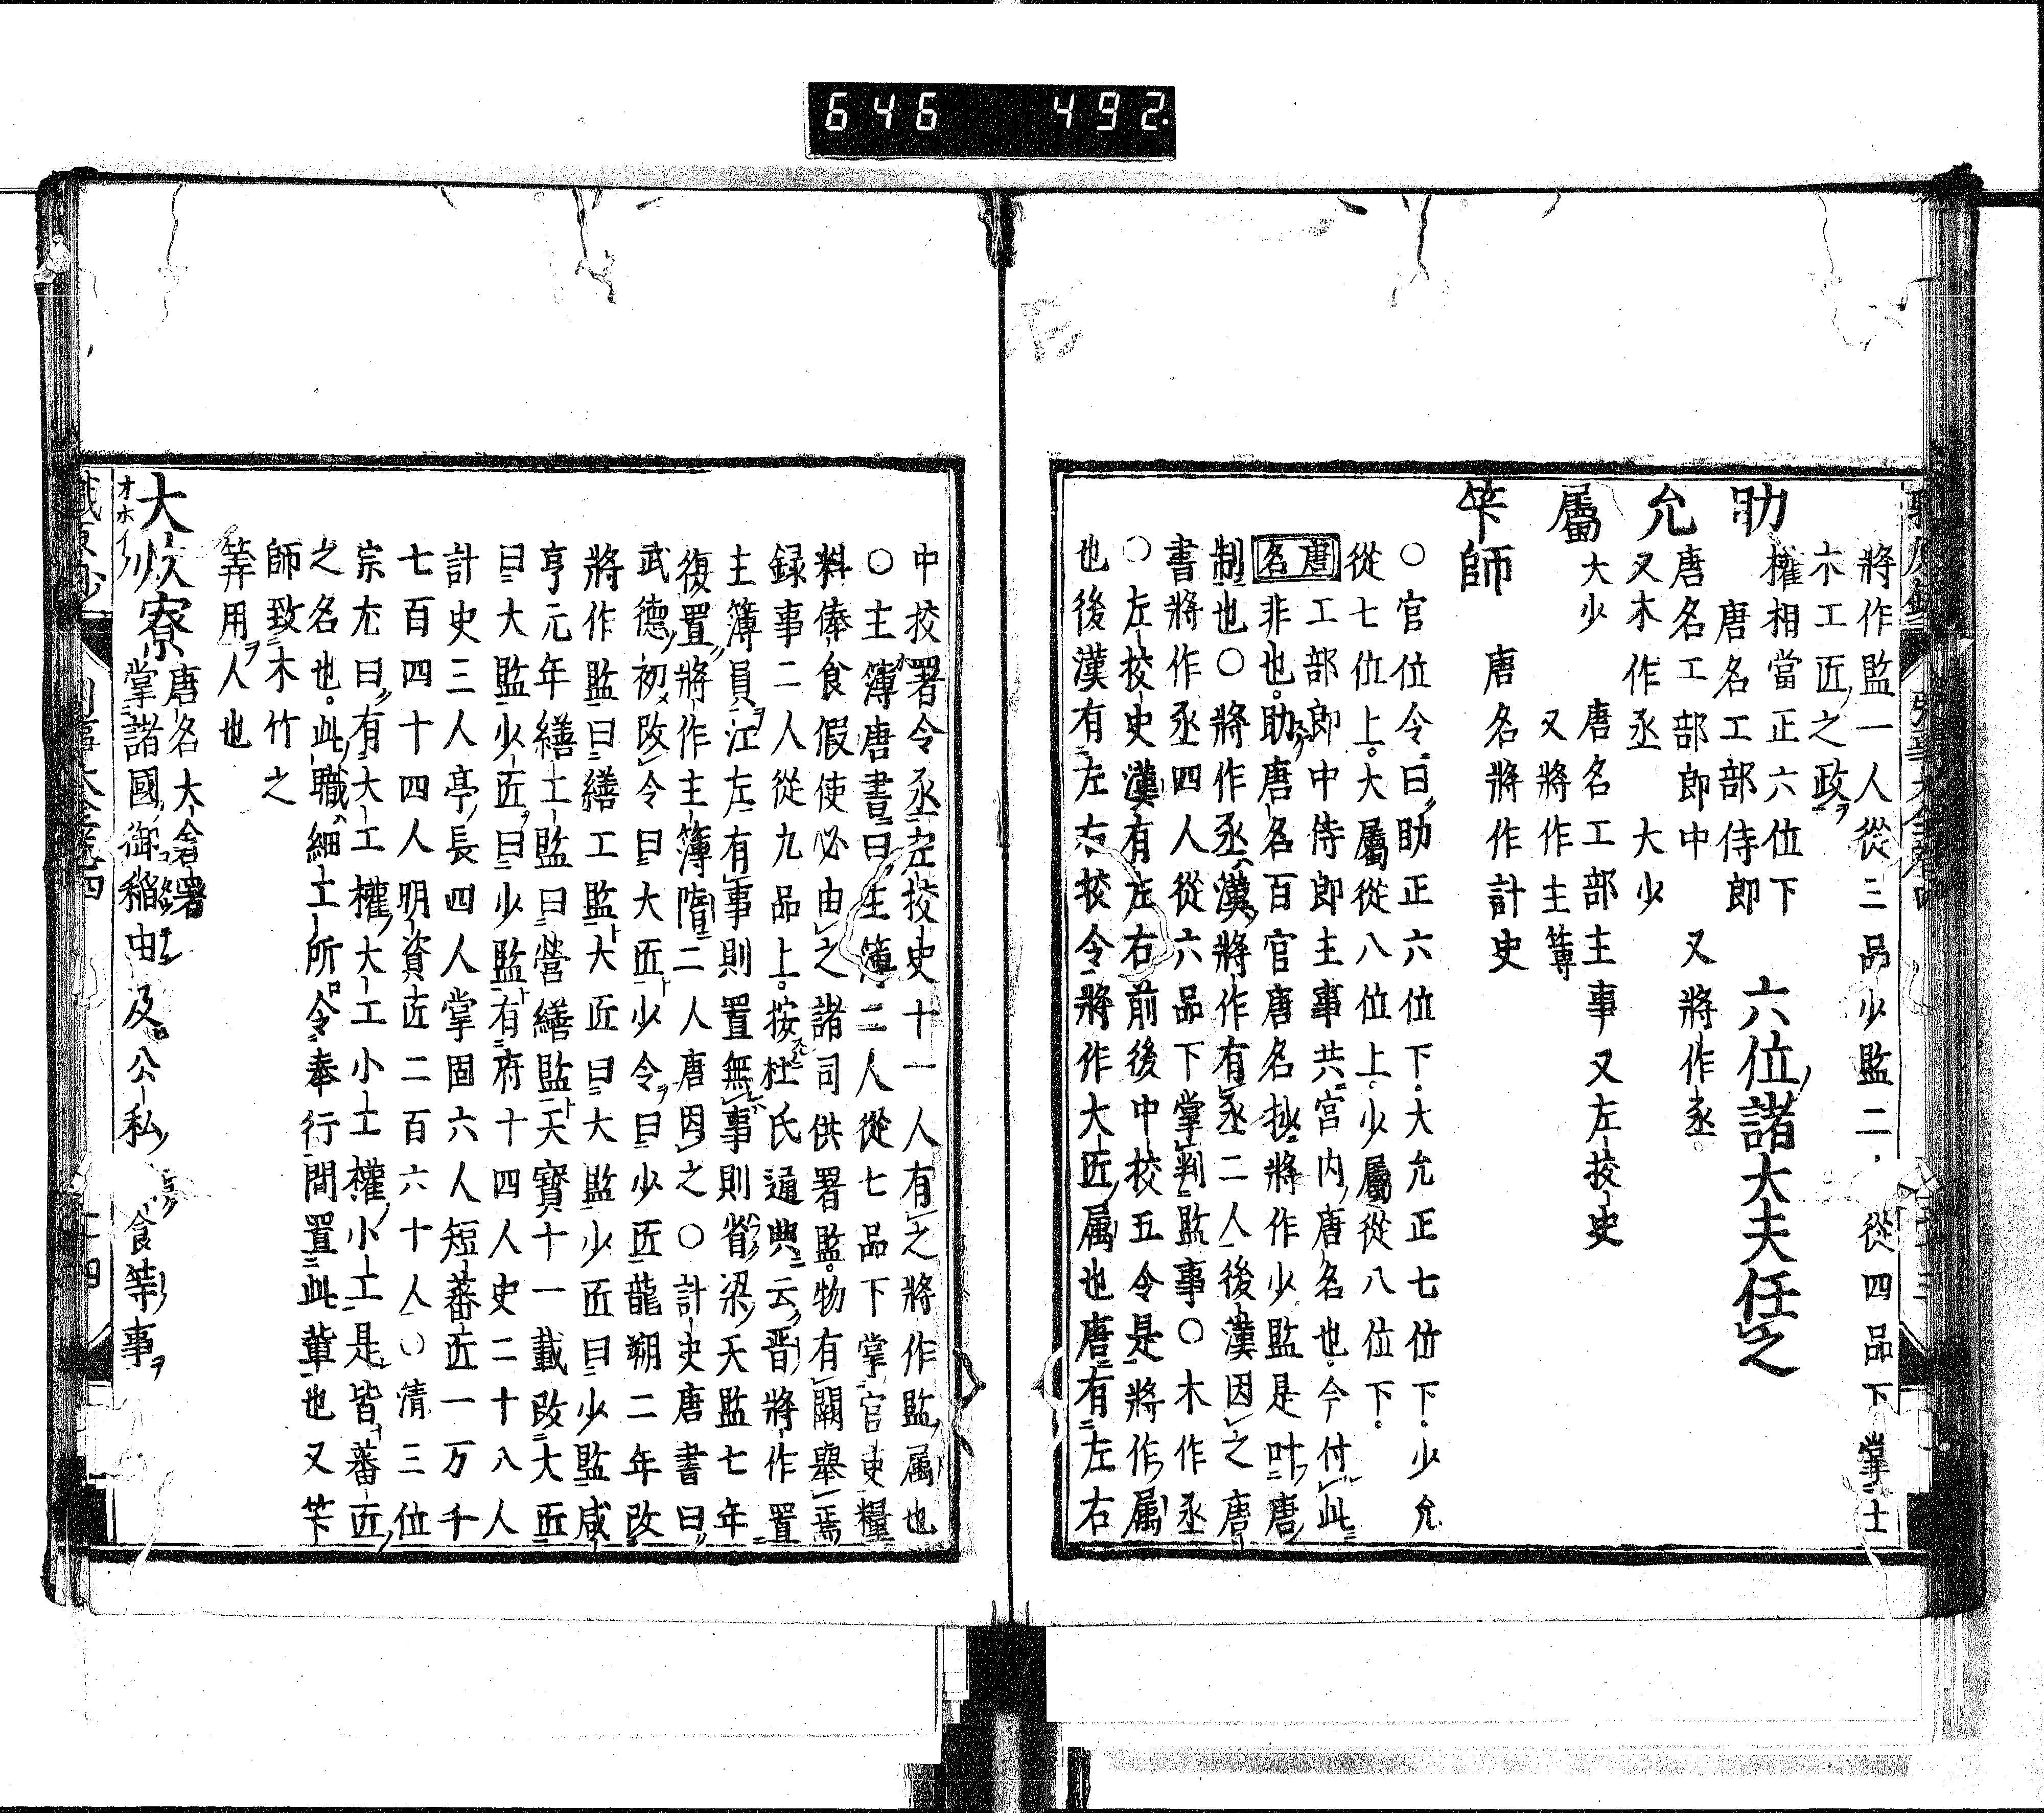 646 492.
將作監一人從三品少監二 從四品下掌土
木工匠之政ヲ
助 權相當正六位下 六位諸大夫任之
唐名工部侍郎
唐名工部郎中 又將作丞
允 又木作丞 大少
屬 大少 唐名工部主事又左校史
又將作主簿
笇師 唐名將作計史
○官位令曰助正六位下大允正七位下少允
從七位上大屬從八位上少屬從八位下
唐名 工部郎中侍郎主事共宮内唐名也今付此
非也助唐名百官唐名抄將作少監是叶唐
制也○將作丞漢將作有丞二人後漢因之唐
書將作丞四人從六品下掌判監事○木作丞
○左校史漢有左右前後中校五令是將作属
也後漢有左右校令將作大匠属也唐有左右
中校署令丞左校史十一人有之將作監属也
○主簿唐書曰主簿二人從七品下掌官吏糧
料俸食假使必由之諸司供署監物有闕舉焉
録事二人從九品上按杜氏通典云晋將作置
主簿員江左有事則置無事則省梁天監七年
復置將作主簿隋二人唐因之○計史唐書曰
武德初改令曰大匠少令曰少匠龍朔二年改
將作監曰繕工監大匠曰大監少匠曰少監咸
亨元年繕工監曰營繕監天寶十一載改大匠
曰大監少匠曰少監有府十四人史二十八人
計史三人亭長四人掌固六人短蕃匠一万千
七百四十四人明資匠二百六十人○清三位
宗尤曰有大工權大工小土權小工是皆蕃匠
之名也此職細工所令奉行間置此輩也又笇
師致木竹之
筭用人也
大炊寮 唐名大倉署
オホイ
掌諸國御稲由及公私 食等事